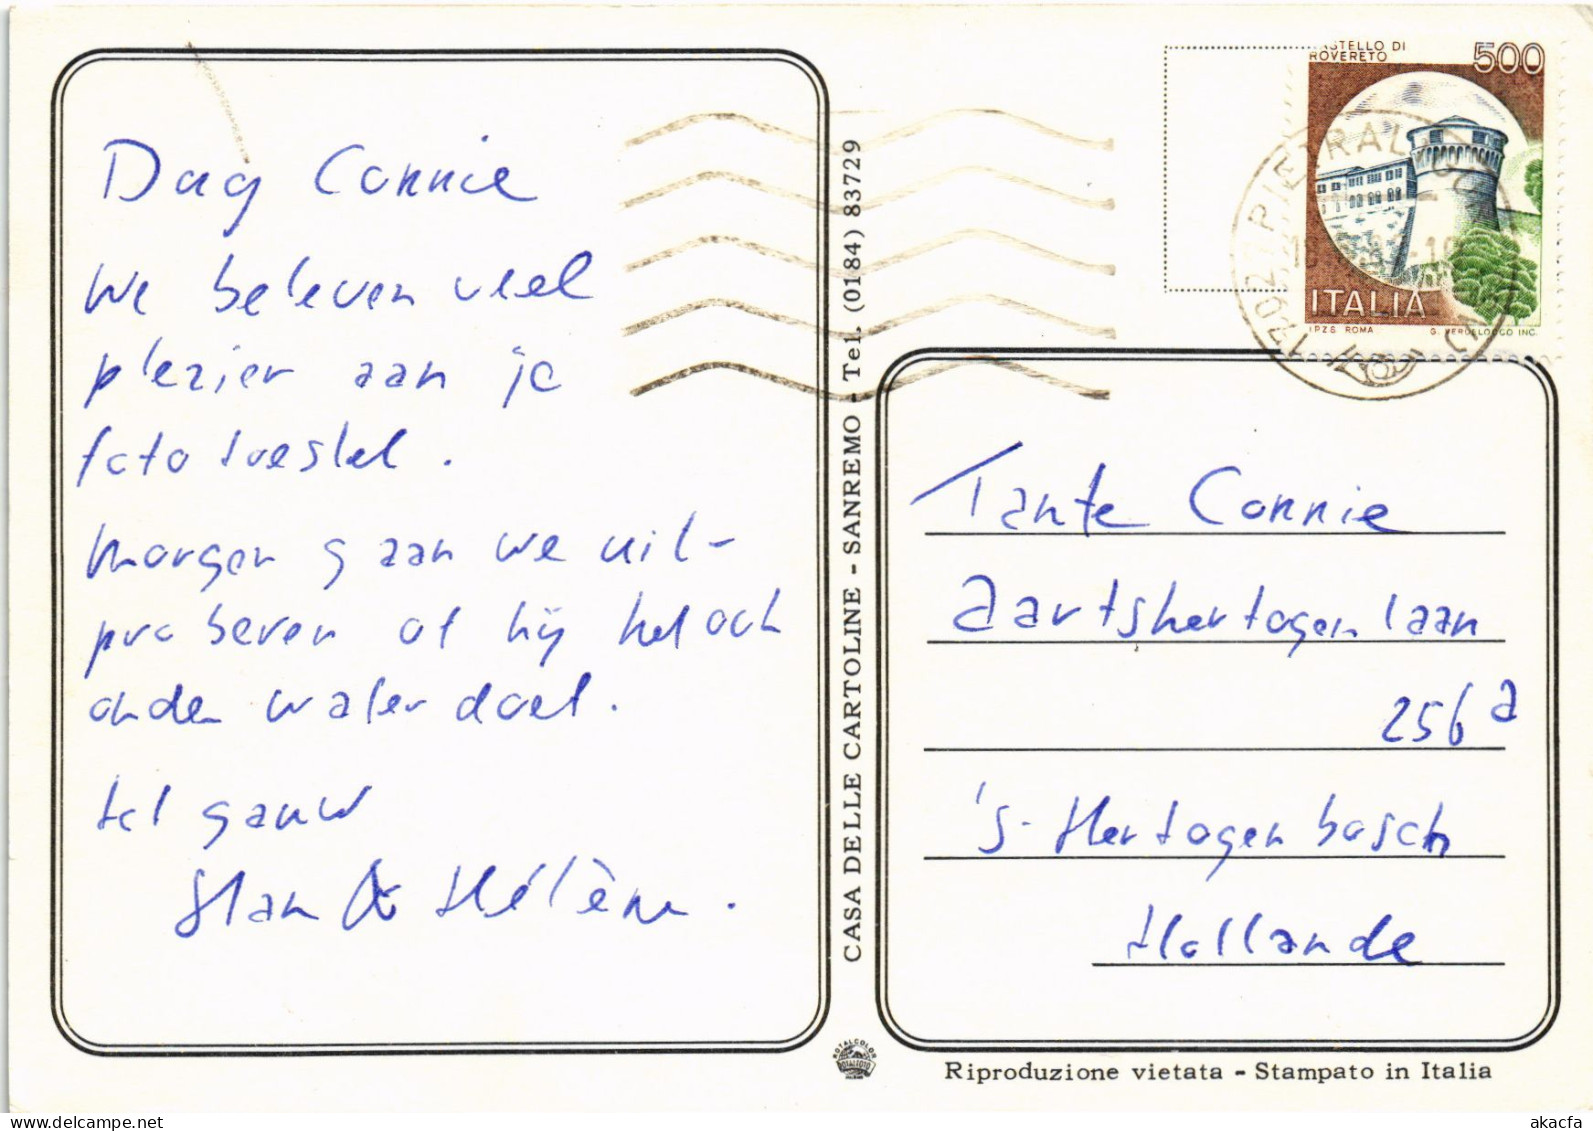 Dag Connie
We beleven veel
plezier aan je
fototoestel.
Morgen gaan we uit-
proberen of hij het ook
onder water doet.
tot gauw
Han & Hélène.
CASA DELLE CARTOLINE - SANREMO - Tel. (0184) 83729
CASTELLO DI
ROVERETO
500
ITALIA
IPZS ROMA
G. VERDELOCCO INC.
Tante Connie
Aartshertogenlaan
256a
's-Hertogenbosch
Hollande
ROTALCOLOR
ROTALFOTO
MILANO
Riproduzione vietata - Stampato in Italia
akacfa
www.delcampe.net